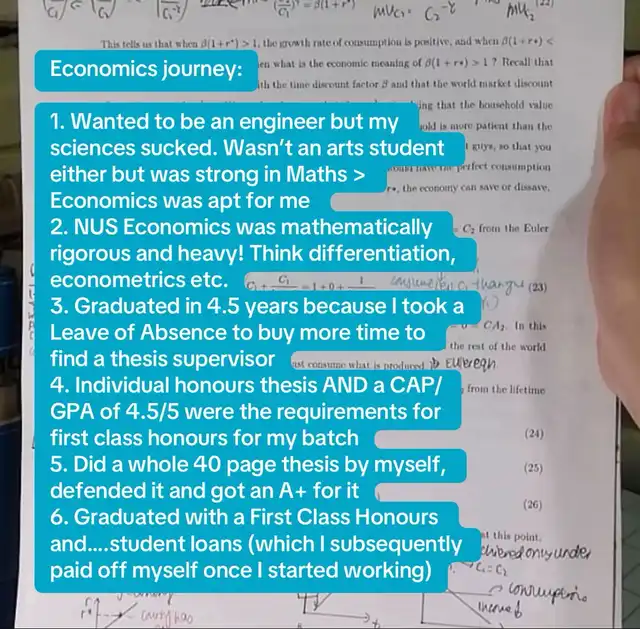 MUC₁ = C₂^-γ
MU₂ (22)
This tells us that when β(1+r*) > 1, the growth rate of consumption is positive, and when β(1+r*) <
Economics journey:
en what is the economic meaning of β(1+r*) > 1 ? Recall that
th the time discount factor β and that the world market discount
1. Wanted to be an engineer but my
sciences sucked. Wasn't an arts student
either but was strong in Maths >
Economics was apt for me
ing that the household value
old is more patient than the
guys, so that you
perfect consumption
r*, the economy can save or dissave,
2. NUS Economics was mathematically
rigorous and heavy! Think differentiation,
econometrics etc.
= C₂ from the Euler
(23)
3. Graduated in 4.5 years because I took a
Leave of Absence to buy more time to
find a thesis supervisor
= CA₂. In this
the rest of the world
ust consume what is produced
4. Individual honours thesis AND a CAP/
GPA of 4.5/5 were the requirements for
first class honours for my batch
from the lifetime
(24)
5. Did a whole 40 page thesis by myself,
defended it and got an A+ for it
(25)
(26)
6. Graduated with a First Class Honours
and....student loans (which I subsequently
paid off myself once I started working)
at this point.
only under
C₁=C₂
r*